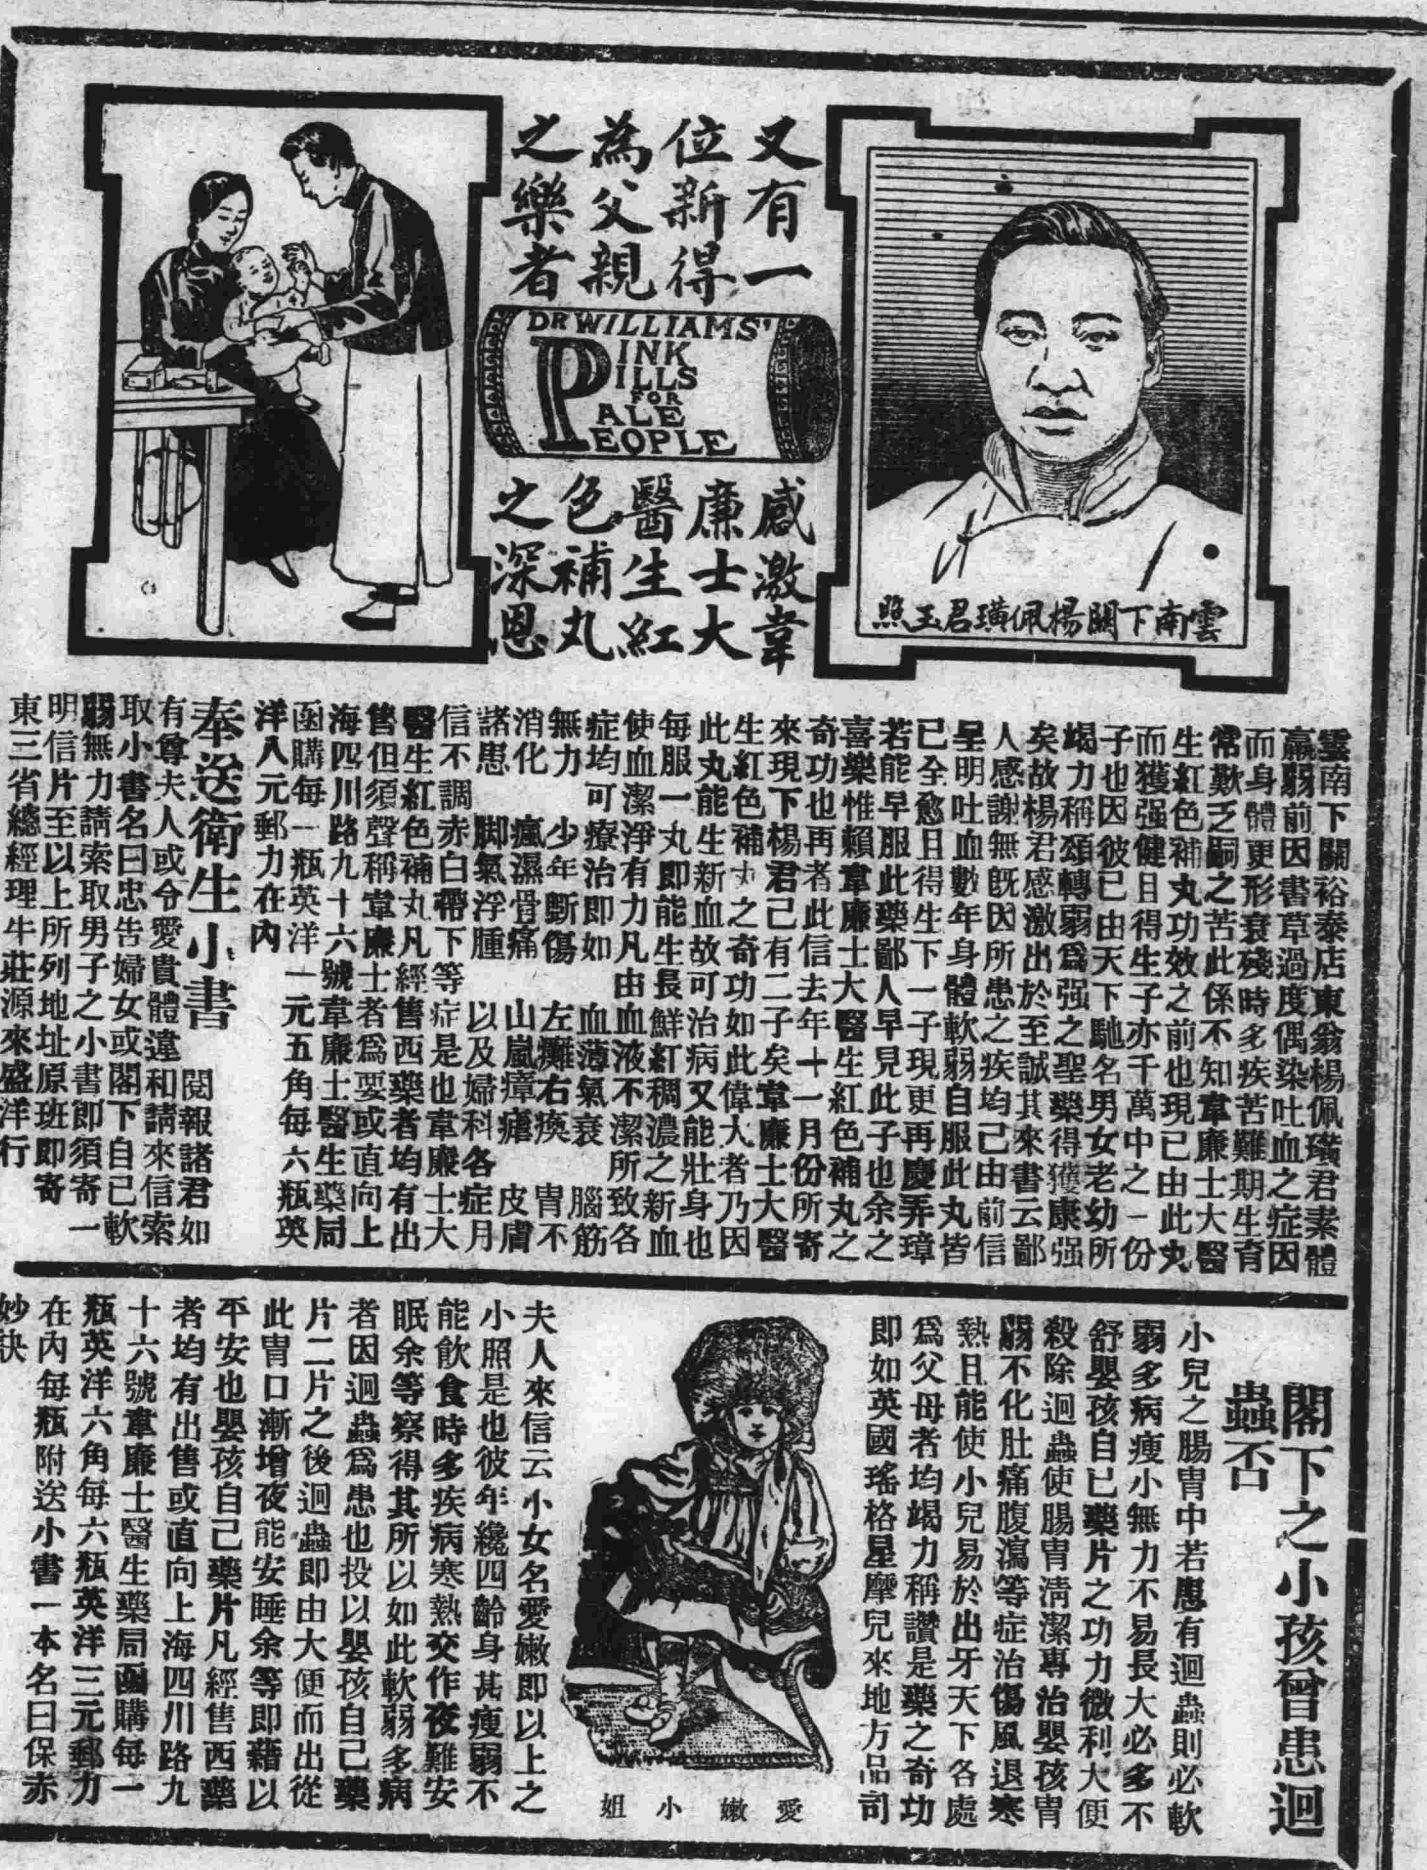 又有一
位新得
為父親
之樂者
DR WILLIAMS'
PINK
PILLS
FOR
PALE
PEOPLE
感激韋
廉士大
醫生紅
色補丸
之深恩
雲南下關楊佩璜君玉照
雲南下關裕泰店東翁楊佩璜君素體
羸弱前因書草過度偶染吐血之症因
而身體更形衰殘時多疾苦難期生育
常歎乏嗣之苦此係不知韋廉士大醫
生紅色補丸功效之前也現已由此丸
而獲强健且得生子亦千萬中之一份
子也因彼已由天下馳名男女老幼所
竭力稱頌轉弱爲强之聖藥得獲康强
矣故楊君感激出於至誠其來書云鄙
人感謝無旣因所患之疾均已由前信
呈明吐血數年身體軟弱自服此丸皆
已全愈且得生下一子現更再慶弄璋
若能早服此藥鄙人早見此子也余之
喜樂惟賴韋廉士大醫生紅色補丸之
奇功也再者此信去年十一月份所寄
來現下楊君已有二子矣韋廉士大醫
生紅色補丸之奇功如此偉大者乃因
此丸能生新血故可治病又能壯身也
每服一丸即能生長鮮紅稠濃之新血
使血潔淨有力凡由血液不潔所致各
症均可療治即如 血薄氣衰 腦筋
無力 少年斷傷 左癱右瘓 胃不
消化 瘋濕骨痛 山嵐瘴瘧 皮膚
諸患 脚氣浮腫 以及婦科各症月
信不調赤白帶下等症是也韋廉士大
醫生紅色補丸凡經售西藥者均有出
售但須聲稱韋廉士者爲要或直向上
海四川路九十六號韋廉士醫生藥局
函購每一瓶英洋一元五角每六瓶英
洋八元郵力在內
奉送衛生小書 閱報諸君如
有尊夫人或令愛貴體違和請來信索
取小書名曰忠告婦女或閣下自己軟
弱無力請索取男子之小書即須寄一
明信片至以上所列地址原班即寄
東三省總經理牛莊源來盛洋行
閣下之小孩曾患迴
蟲否
小兒之腸胃中若患有迴蟲則必軟
弱多病瘦小無力不易長大必多不
舒嬰孩自已藥片之功力微利大便
殺除迴蟲使腸胃淸潔專治嬰孩胃
弱不化肚痛腹瀉等症治傷風退寒
熱且能使小兒易於出牙天下各處
爲父母者均竭力稱讚是藥之奇功
即如英國瑤格星摩兒來地方品司
愛嫩小姐
夫人來信云小女名愛嫩即以上之
小照是也彼年纔四齡身甚瘦弱不
能飲食時多疾病寒熱交作夜難安
眠余等察得其所以如此軟弱多病
者因迴蟲爲患也投以嬰孩自己藥
片二片之後迴蟲即由大便而出從
此胃口漸增夜能安睡余等即藉以
平安也嬰孩自己藥片凡經售西藥
者均有出售或直向上海四川路九
十六號韋廉士醫生藥局函購每一
瓶英洋六角每六瓶英洋三元郵力
在內每瓶附送小書一本名曰保赤
妙訣